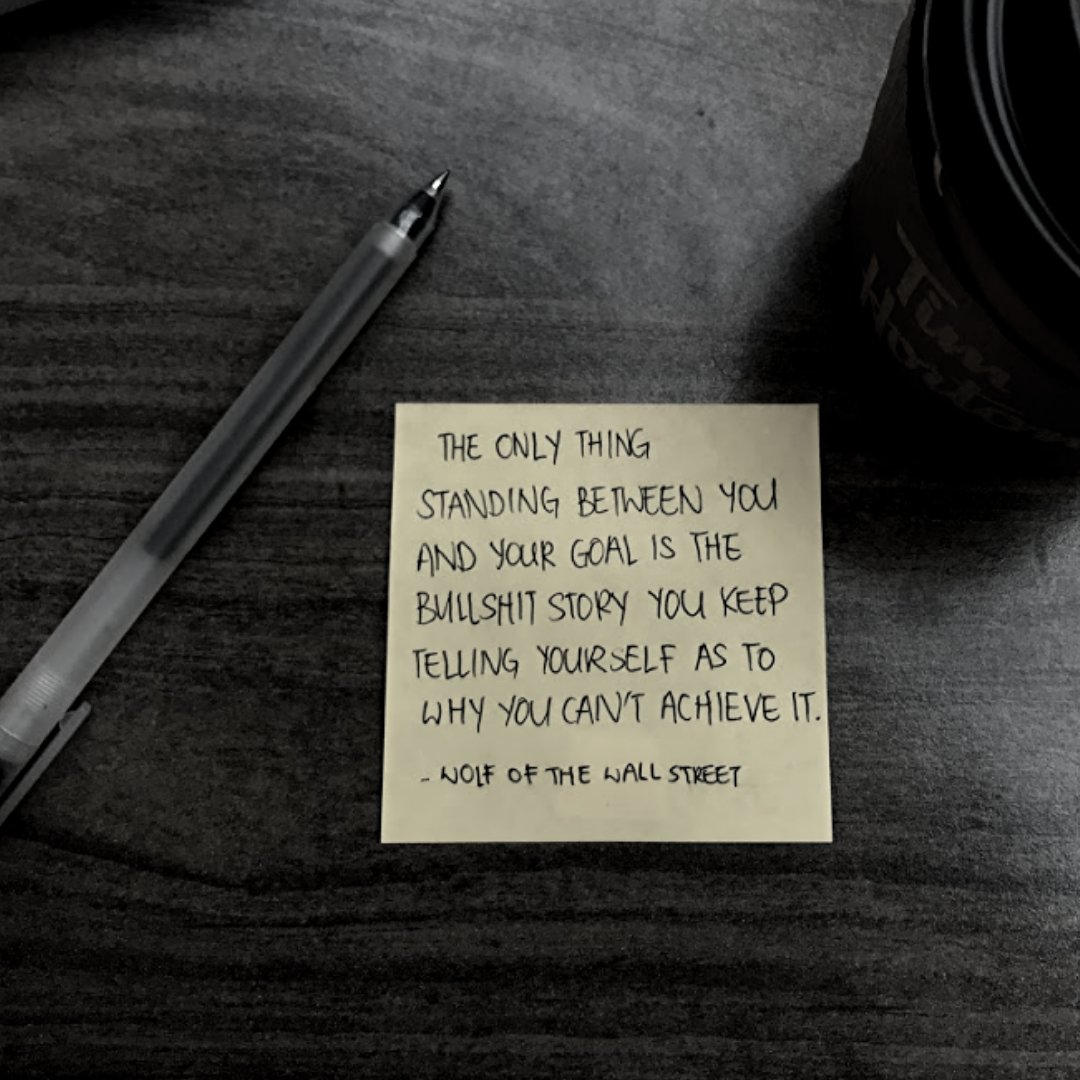 THE ONLY THING
STANDING BETWEEN YOU
AND YOUR GOAL IS THE
BULLSHIT STORY YOU KEEP
TELLING YOURSELF AS TO
WHY YOU CAN'T ACHIEVE IT.
- WOLF OF THE WALL STREET
Tim
Hortons